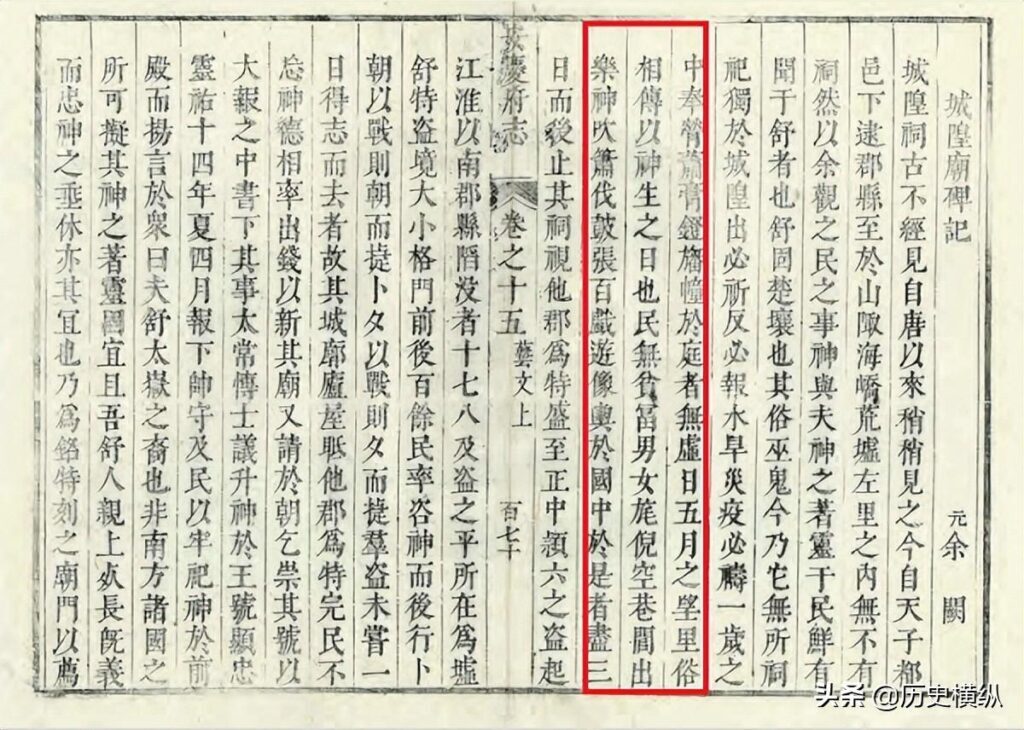 城隍廟碑記
元余闕
城隍祠古不經見自唐以來稍稍見之今自天子都
邑下逮郡縣至於山陬海嶠荒墟左里之內無不有
祠然以余觀之民之事神與夫神之著靈于民鮮有
聞于舒者也舒固楚壤也其俗巫鬼今乃它無所祠
祀獨於城隍出必祈反必報水旱災疫必禱一歲之
中奉膋蕭膏鐙旛幢於庭者無虛日五月之望里俗
相傳以神生之日也民無貧富男女旄倪空巷閭出
樂神吹簫伐鼓張百戲遊像輿於國中於是者盡三
日而後止其祠視他郡爲特盛至正中潁六之盜起
安慶府志
卷之十五
藝文上
百七十
江淮以南郡縣陷没者十七八及盜之平所在爲墟
舒特盜境大小格門前後百餘民率咨神而後行卜
朝以戰則朝而捷卜夕以戰則夕而捷羣盜未嘗一
日得志而去者故其城廓廬屋眡他郡爲特完民不
忘神德相率出錢以新其廟又請於朝乞崇其號以
大報之中書下其事太常博士議升神於王號顯忠
靈祐十四年夏四月報下帥守及民以牢祀神於前
殿而揚言於衆曰夫舒太嶽之裔也非南方諸國之
所可擬其神之著靈固宜且吾舒人親上死長旣義
而忠神之垂休亦其宜也乃爲銘特刻之廟門以薦
头条 @历史横纵